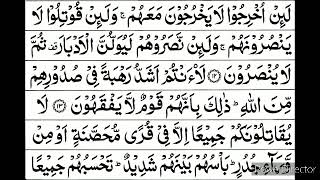 لَئِنْ اُخْرِجُوْا لَا يَخْرُجُوْنَ مَعَهُمْ ۚ وَلَئِنْ قُوْتِلُوْا لَا
يَنْصُرُوْنَهُمْ ۚ وَلَئِنْ نَّصَرُوْهُمْ لَيُوَلُّنَّ الْاَدْبَارَ ۫ ثُمَّ
لَا يُنْصَرُوْنَ ﴿۱۲﴾ لَاَنْتُمْ اَشَدُّ رَهْبَةً فِيْ صُدُوْرِهِمْ
مِّنَ اللّٰهِ ؕ ذٰلِكَ بِاَنَّهُمْ قَوْمٌ لَّا يَفْقَهُوْنَ ﴿۱۳﴾ لَا
يُقَاتِلُوْنَكُمْ جَمِيْعًا اِلَّا فِيْ قُرًى مُّحَصَّنَةٍ اَوْ مِنْ
جُدُرٍ ؕ بَاْسُهُمْ بَيْنَهُمْ شَدِيْدٌ ؕ تَحْسَبُهُمْ جَمِيْعًا